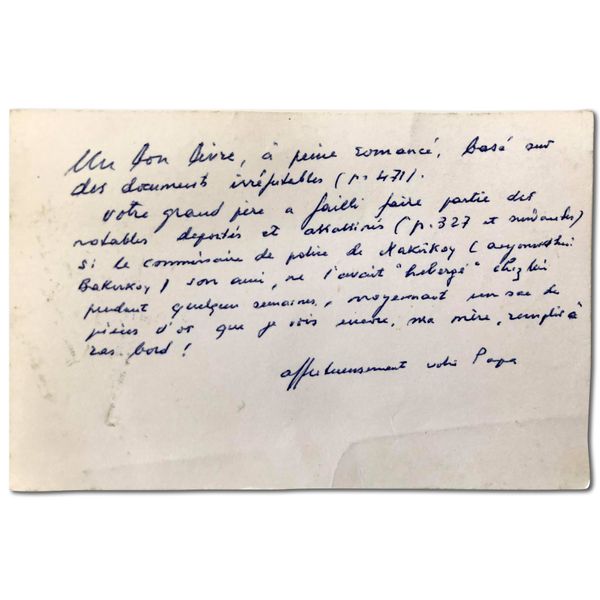 Un bon livre, à peine romancé, basé sur
des documents irréfutables (p. 471).
votre grand père a failli faire partie des
notables déportés et (p. 327 et suivantes)
si le commissaire de police de Makrikoy (aujourd'hui
Bakirkoy) son ami, ne l'avait "hébergé" chez lui
pendant quelques semaines, moyennant un sac de
pièces d'or que je vois encore, ma mère, remplir à
ras bord!
affectueusement votre Papa